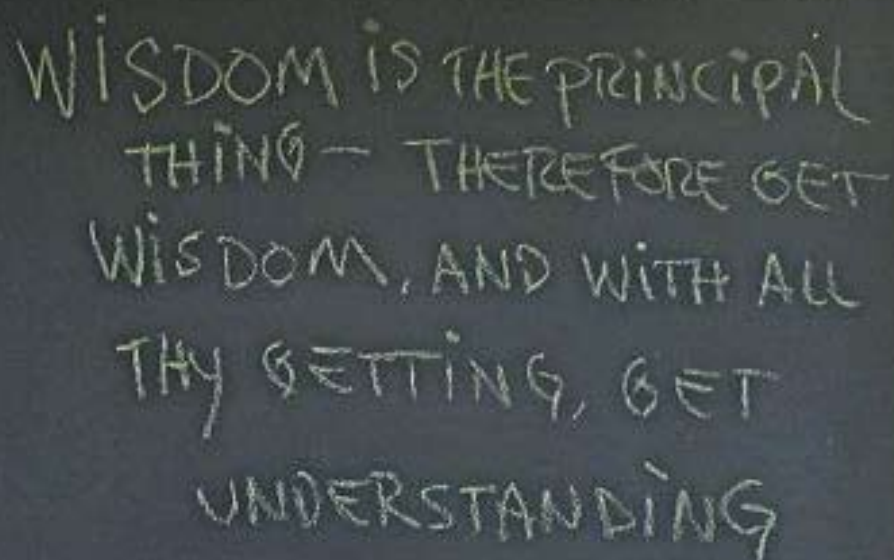 WiSDOM iS THE PRiNCiPAL
THiNG - THEREFORE GET
WiSDOM, AND WiTH ALL
THY GETTiNG, GET
UNDERSTANDiNG